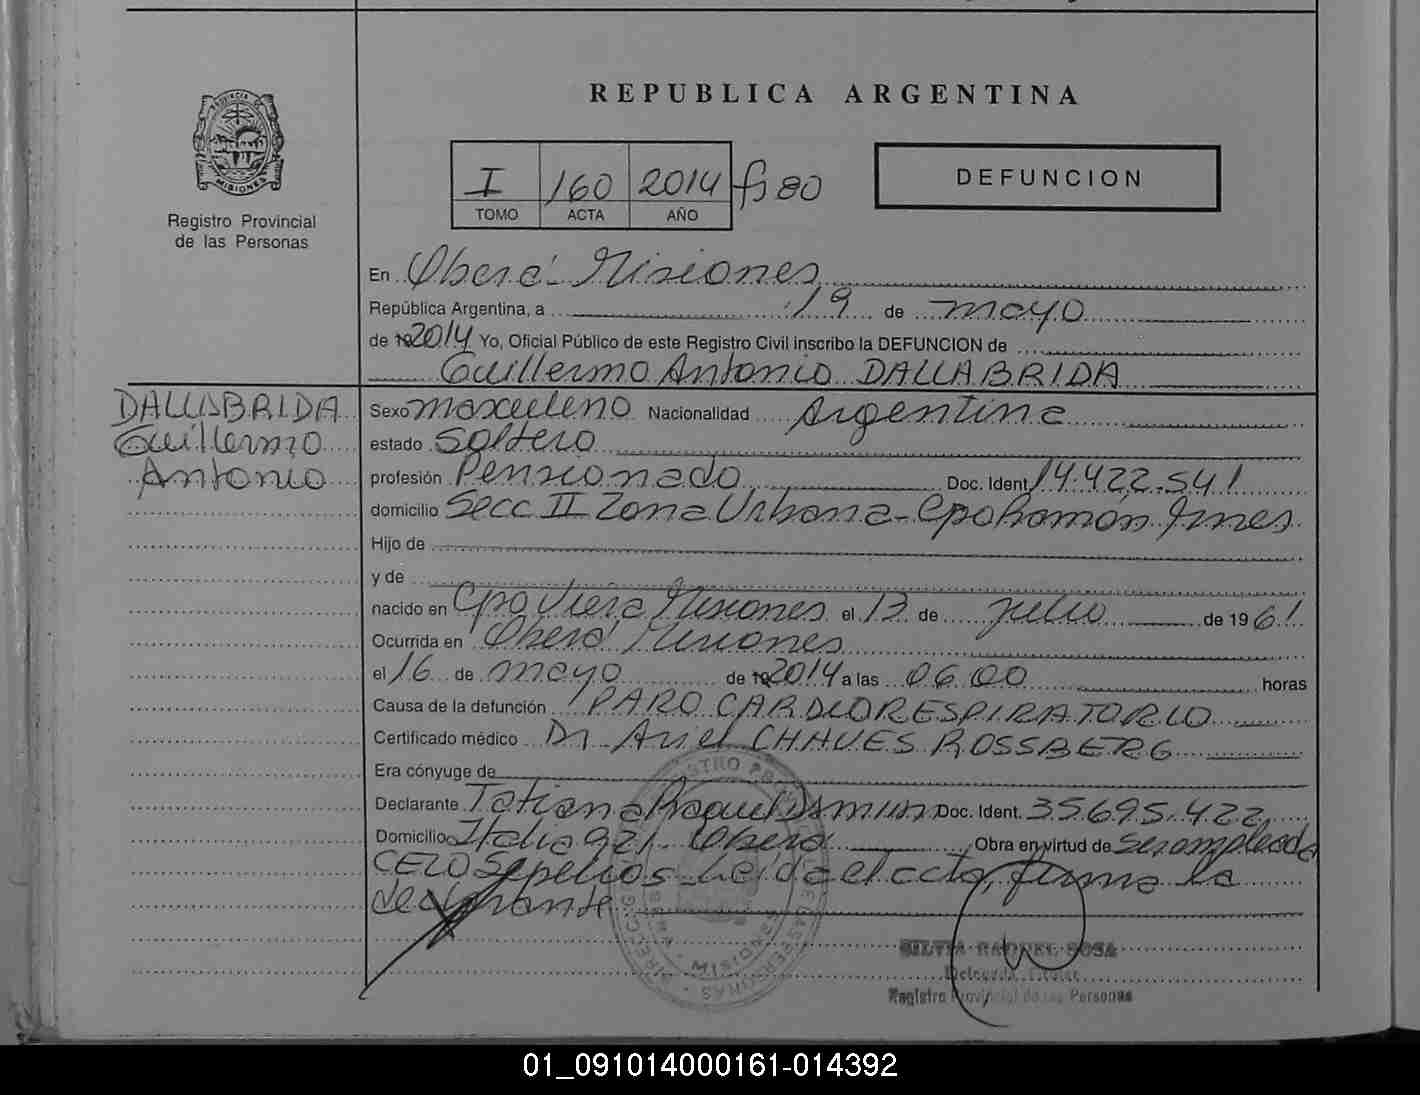 REPUBLICA ARGENTINA
PROVINCIA DE
MISIONES
Registro Provincial
de las Personas
I 160 2014 fs 80
TOMO ACTA AÑO
DEFUNCION
En Oberá - Misiones
República Argentina, a 19 de mayo
de 2014 Yo, Oficial Público de este Registro Civil inscribo la DEFUNCION de
Guillermo Antonio DALLABRIDA
DALLABRIDA
Guillermo
Antonio
Sexo masculino Nacionalidad Argentina
estado soltero
profesión Pensionado Doc. Ident. 14.422.541
domicilio Secc II Zona Urbana - Cpo Ramon - Mnes
Hijo de
y de
nacido en Cpo Viera Misiones el 13 de julio de 1961
Ocurrida en Oberá Misiones
el 16 de mayo de 2014 a las 06 00 horas
Causa de la defunción PARO CARDIORESPIRATORIO
Certificado médico Dr. Ariel CHAVES ROSSBERG
Era cónyuge de
Declarante Tatiana Raquel Doc. Ident. 35.695.422
Domicilio Italia 921 - Oberá Obra en virtud de ser empleada
CELO Sepelios - Leída el acta, firma la
declarante
SILVIA RAQUEL SOSA
Delegada Titular
Registro Provincial de las Personas
01_091014000161-014392